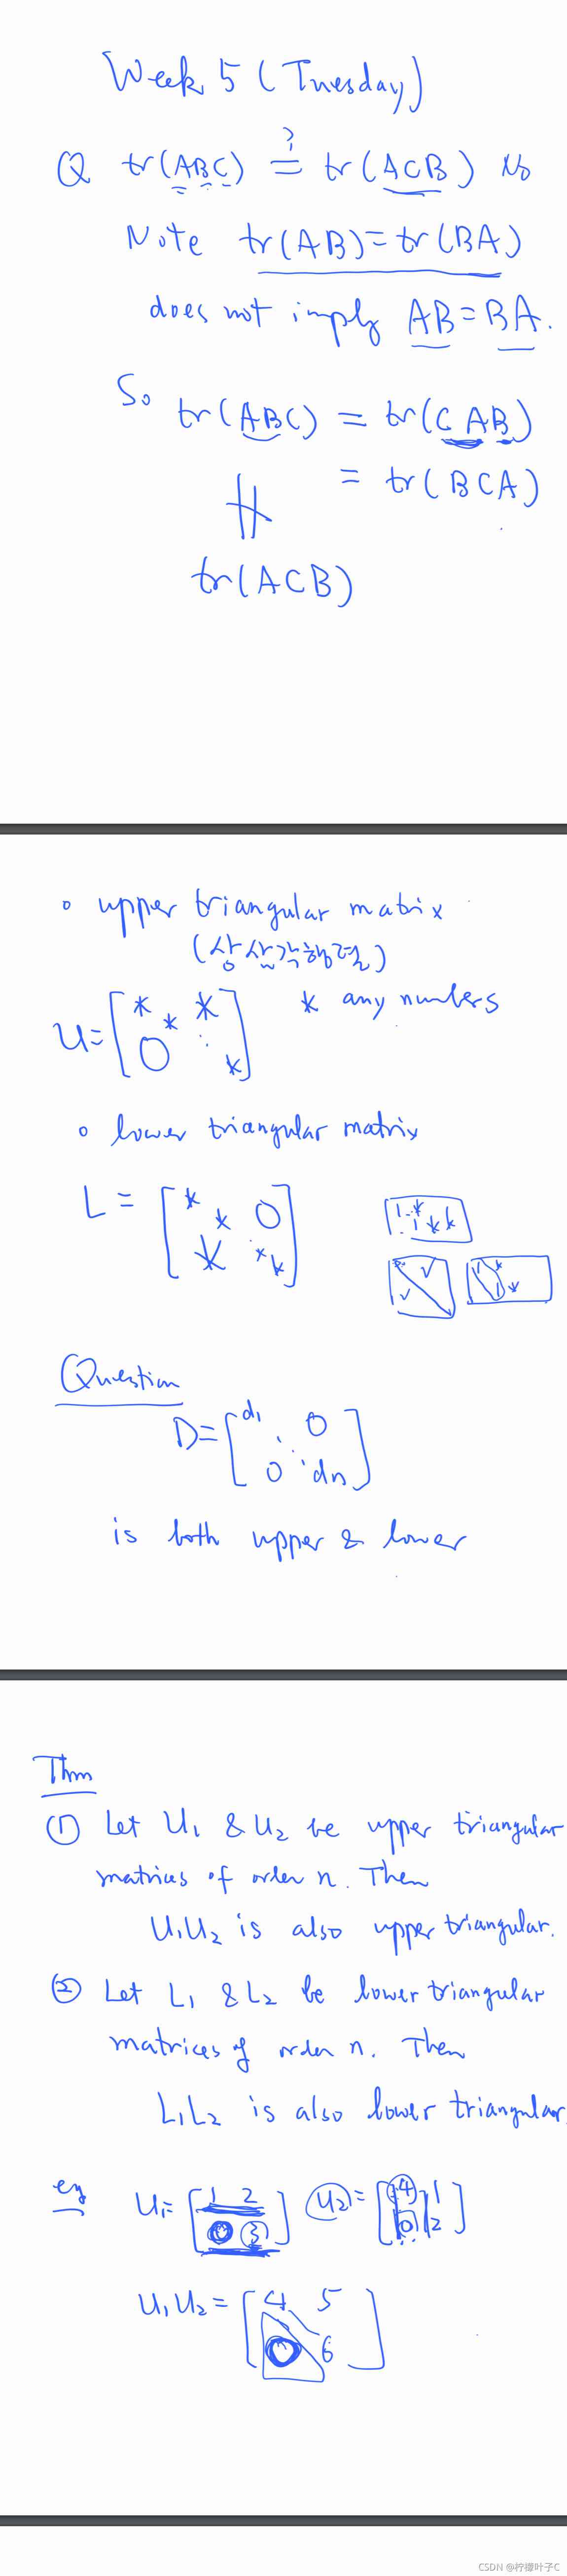 Week 5 (Tuesday)
Q tr(ABC) ?= tr(ACB) No
Note tr(AB)=tr(BA)
does not imply AB=BA.
So tr(ABC) = tr(CAB)
= tr(BCA)
≠
tr(ACB)
∘ upper triangular matrix
(상삼각행렬)
U=[* * * 0 ⋱ *] * any numbers
∘ lower triangular matrix
L = [* * 0 * ⋱ *]
Question
D=[d₁ 0 ⋱ 0 dn]
is both upper & lower
Thm
① Let U₁ & U₂ be upper triangular
matrices of order n. Then
U₁U₂ is also upper triangular.
② Let L₁ & L₂ be lower triangular
matrices of order n. Then
L₁L₂ is also lower triangular
eg U₁=[1 2 0 3] U₂=[4 1 0 2]
U₁U₂=[4 5 0 6]
CSDN @柠檬叶子C